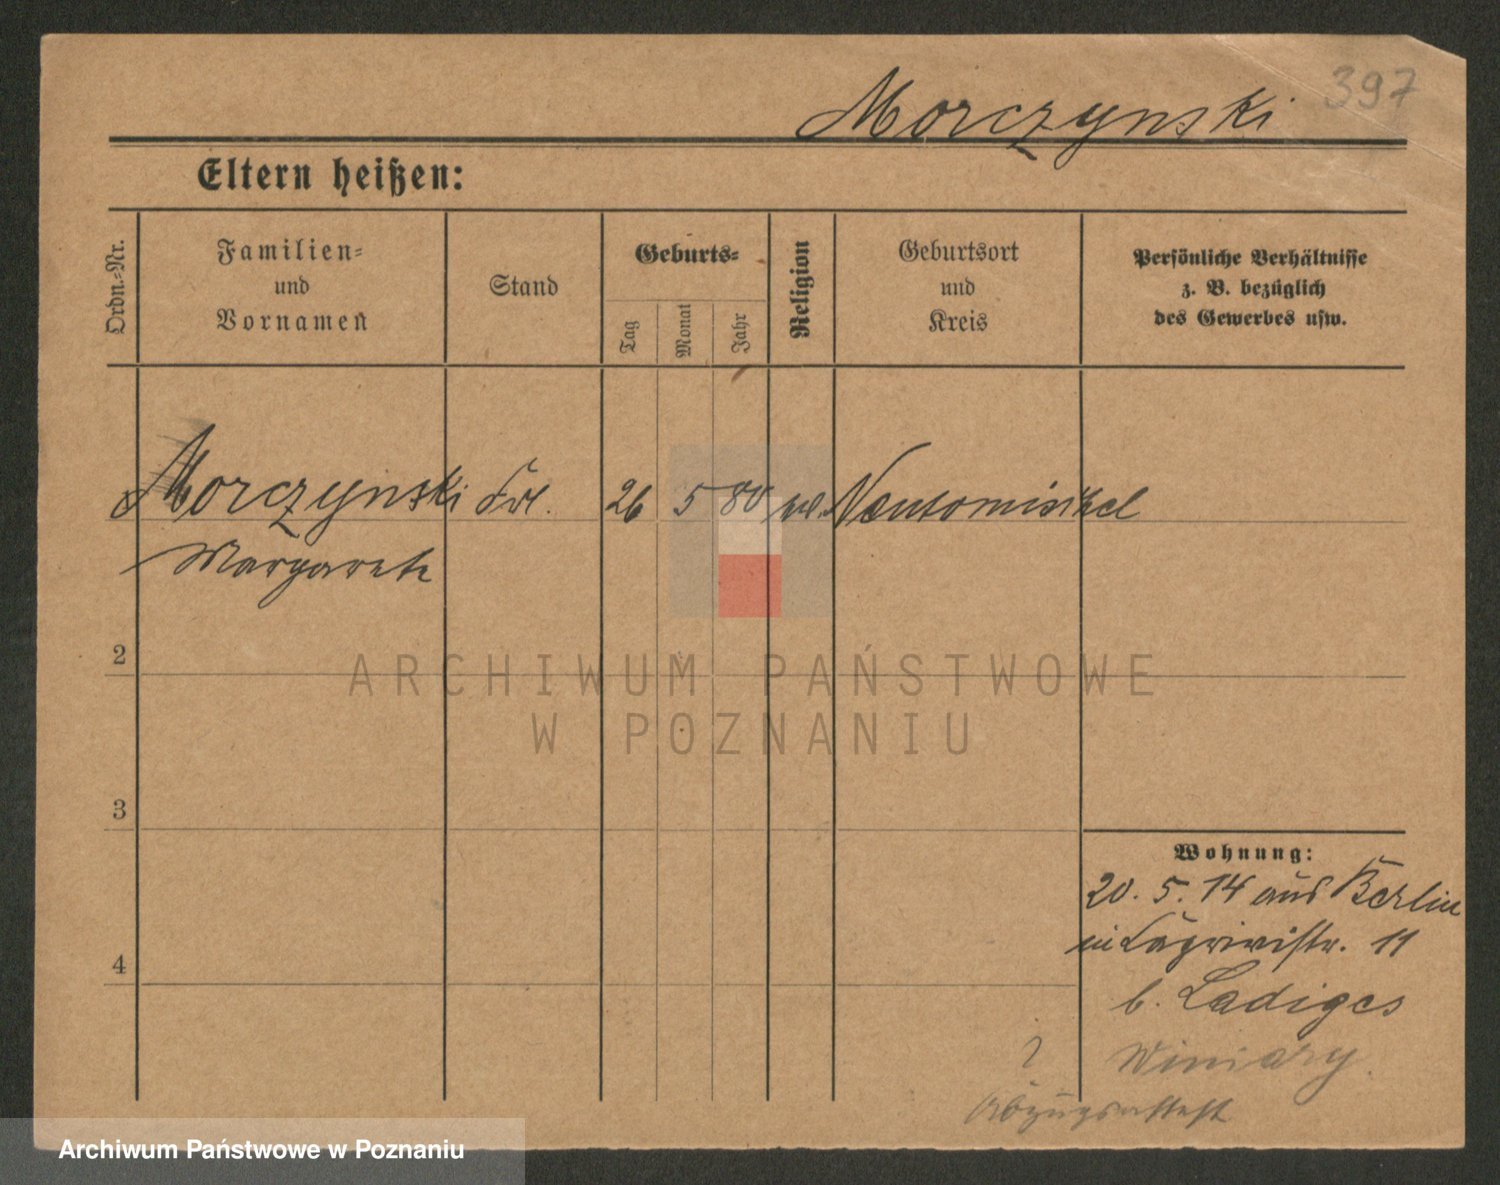 397
Morczynski
Eltern heißen:
Ordn.-Nr.
Familien-
und
Vornamen
Stand
Geburts-
Tag
Monat
Jahr
Religion
Geburtsort
und
Kreis
Persönliche Verhältnisse
z. B. bezüglich
des Gewerbes usw.
Morczynski Frl. 26 5 80 Neutomischel
Margarete
2
3
4
Wohnung:
20. 5. 14 aus Berlin
in 11
b. Ladiges
Winiary
ARCHIWUM PAŃSTWOWE
W POZNANIU
Archiwum Państwowe w Poznaniu